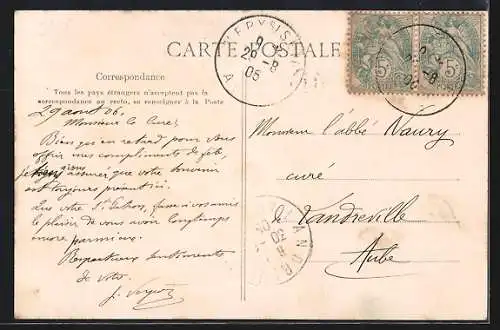 CARTE POSTALE
Correspondance
Tous les pays étrangers n'acceptent pas la
correspondance au recto, se renseigner à la Poste
29 août 06.
Monsieur le Curé,
Bien qu'en retard pour vous
offrir mes compliments de fête,
assurer que votre souvenir
est toujours
Que votre St fasse à vos amis
le plaisir de vous avoir longtemps
encore parmi eux.
Respectueux sentiments
de votre
Monsieur l'abbé Naury
curé
de Vandreville
Aube
5
5